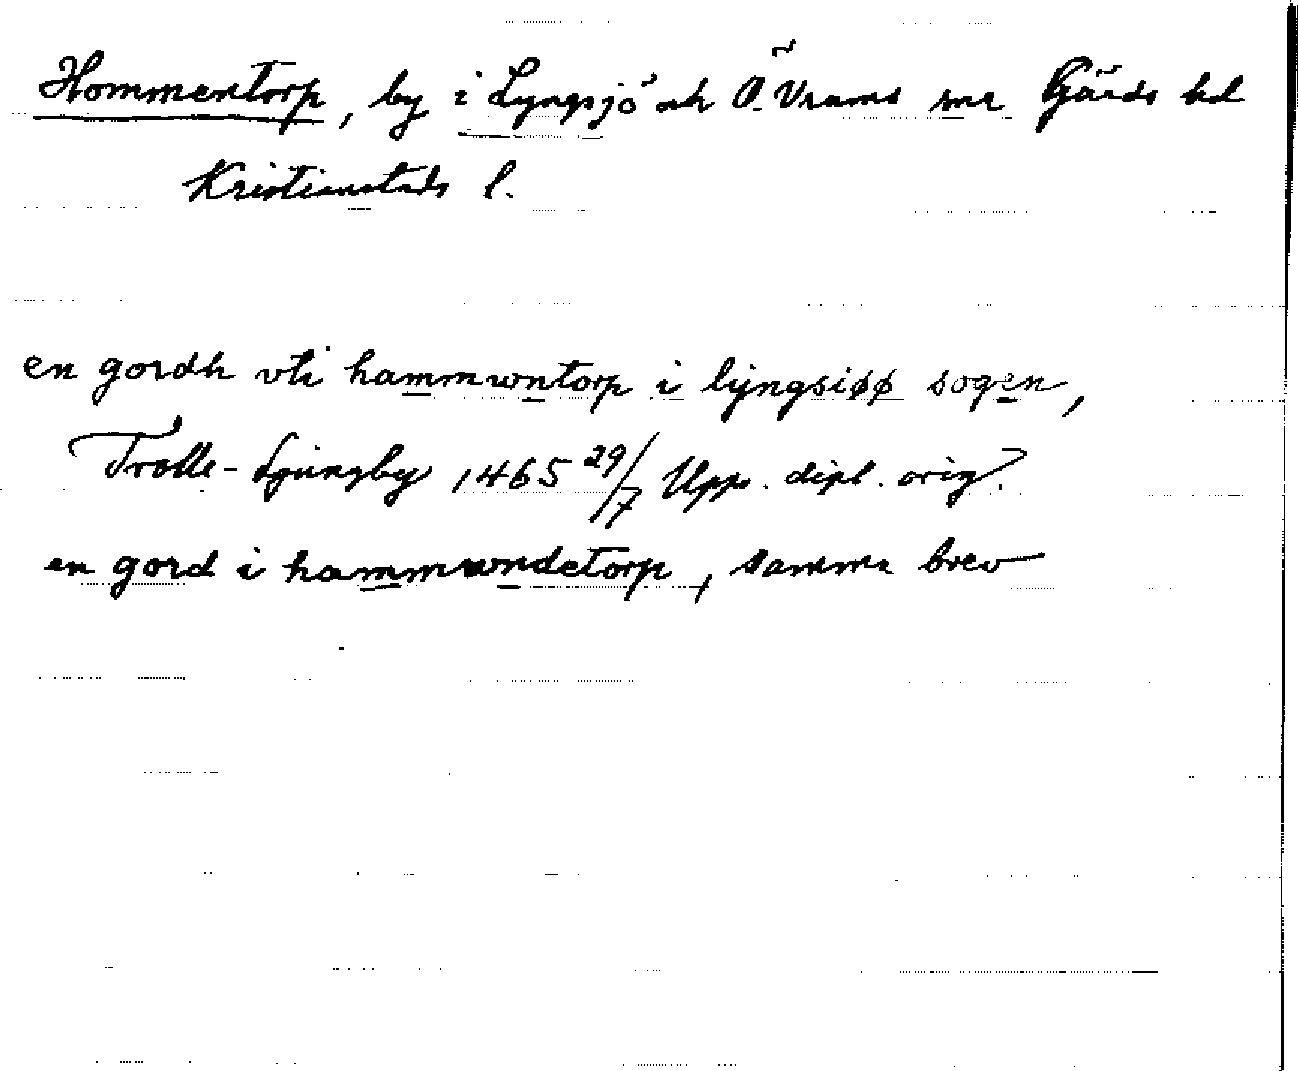 Hommentorp, by i Lyngsjö och Ö. Vrams snr Gärds hd
Kristianstads l.
en gordh vti hammwntorp i lÿngsiøø sogen,
Trolle-Ljungby 1465 29/7 Upps. dipl. orig.
en gord i hammwndetorp, samma brev